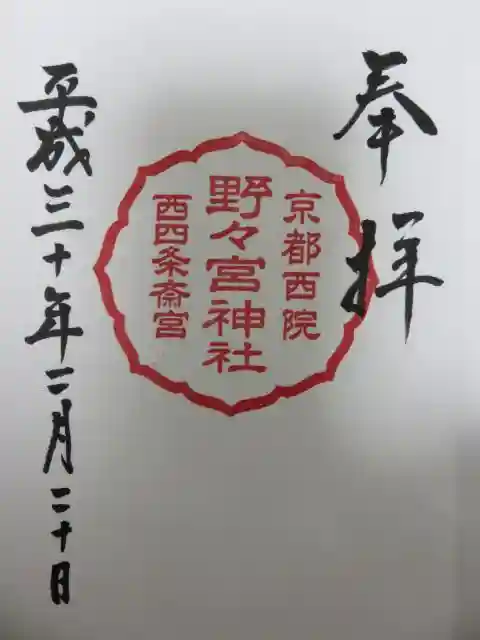 奉拝
京都西院
野々宮神社
西四条斎宮
平成三十年二月二十日